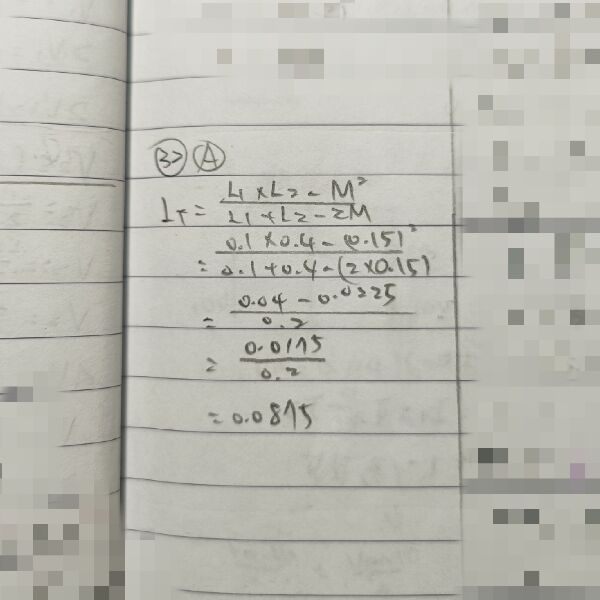 32 A
LT = L1 × L2 - M² / L1 + L2 - 2M
= 0.1 × 0.4 - (0.15)² / 0.1 + 0.4 - (2 × 0.15)
= 0.04 - 0.0225 / 0.2
= 0.0175 / 0.2
= 0.0875